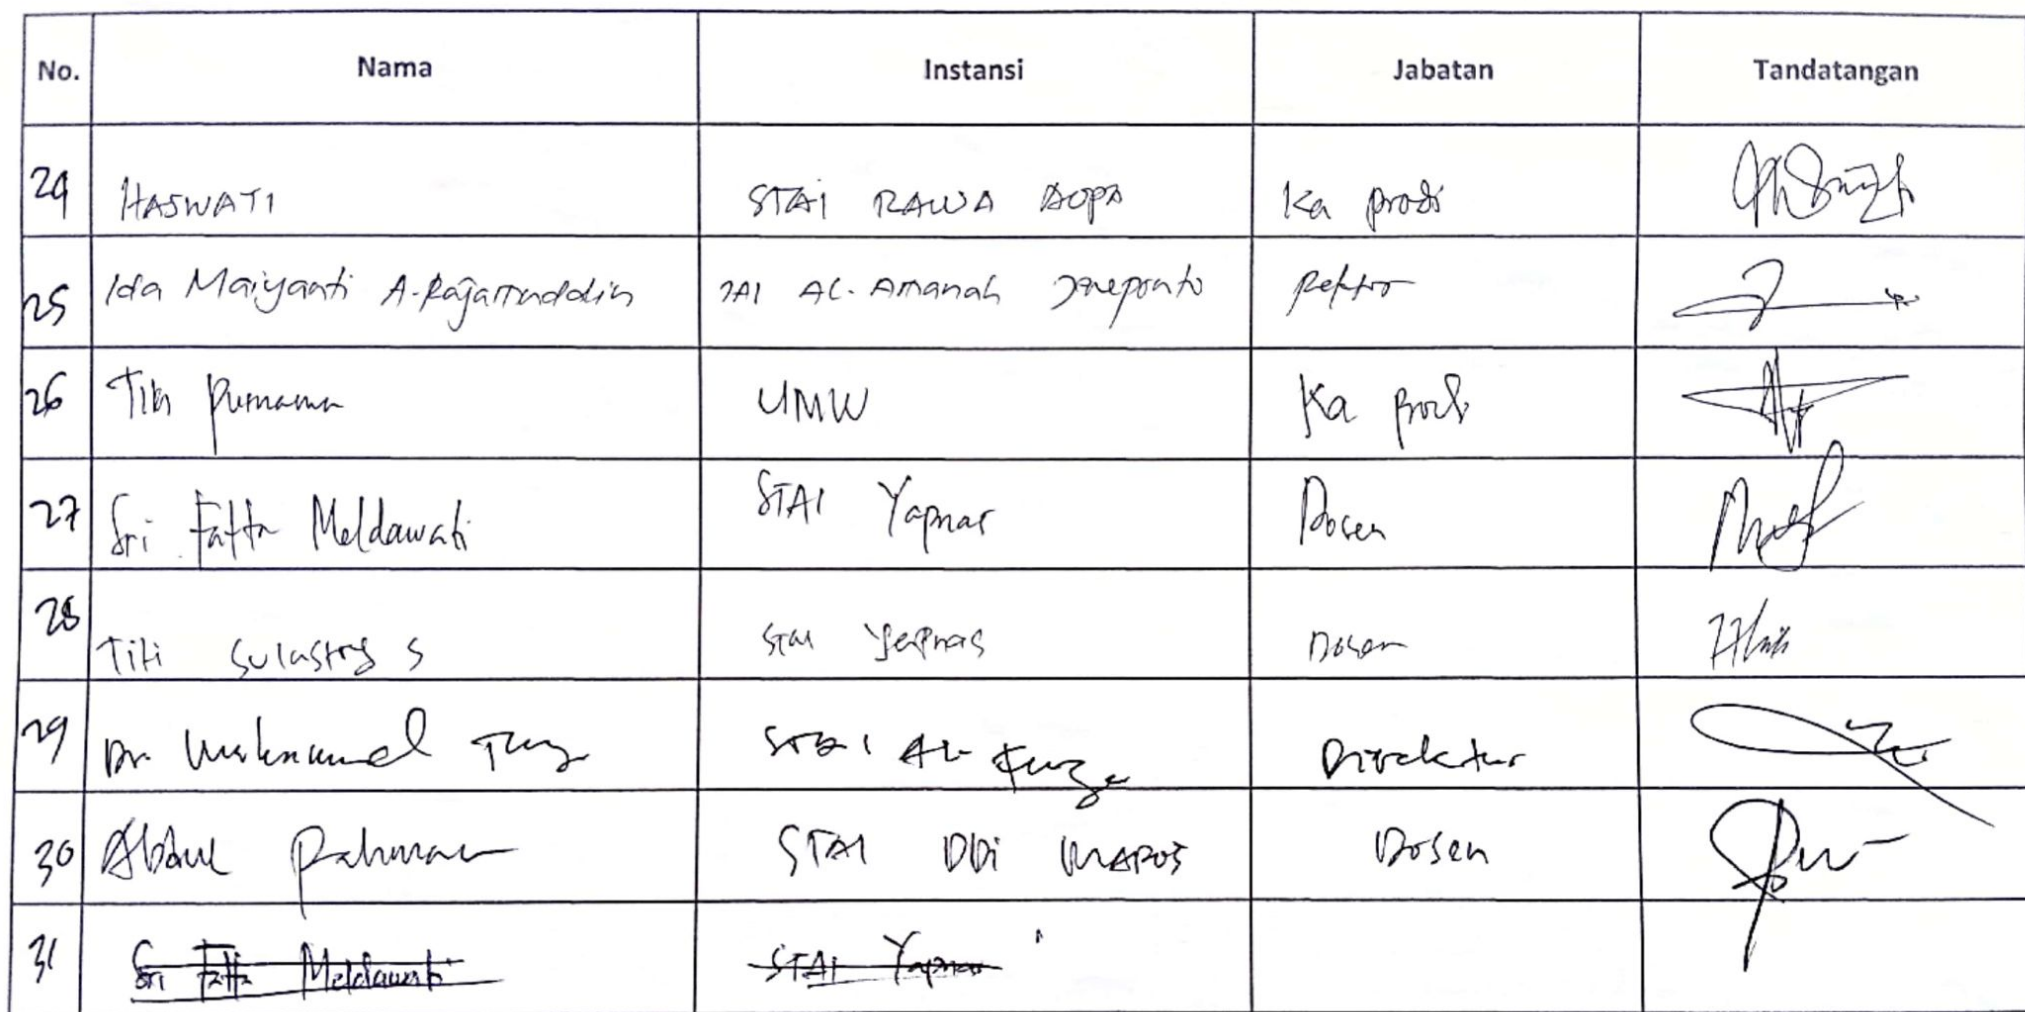 No. Nama Instansi Jabatan Tandatangan
24 HASWATI STAI RAWA AOPA Ka prodi
25 Ida Maiyanti A. Rajamuddin IAI AL-Amanah Jeneponto Rektor
26 Titi Purnama UMW Ka prodi
27 Sri Fatta Meldawati STAI Yapnas Dosen
28 Titi Sulastry S STAI Yapnas Dosen
29 Dr. Muhammad STAI AL- Direktur
30 Abdul Rahman STAI DDI MAROS Dosen
31 Sri Fatta Meldawati STAI Yapnas